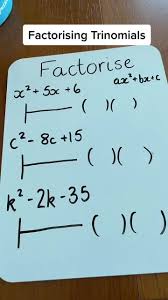 Factorising Trinomials
Factorise
ax²+bx+c
x² + 5x + 6
( )( )
c² - 8c + 15
( )( )
k² - 2k - 35
( )( )